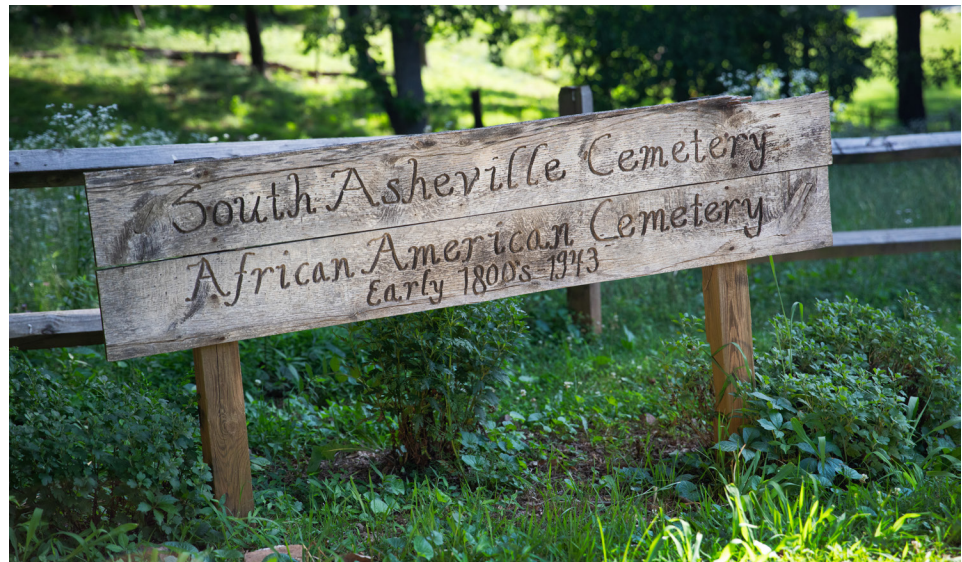 South Asheville Cemetery
African American Cemetery
Early 1800's-1943